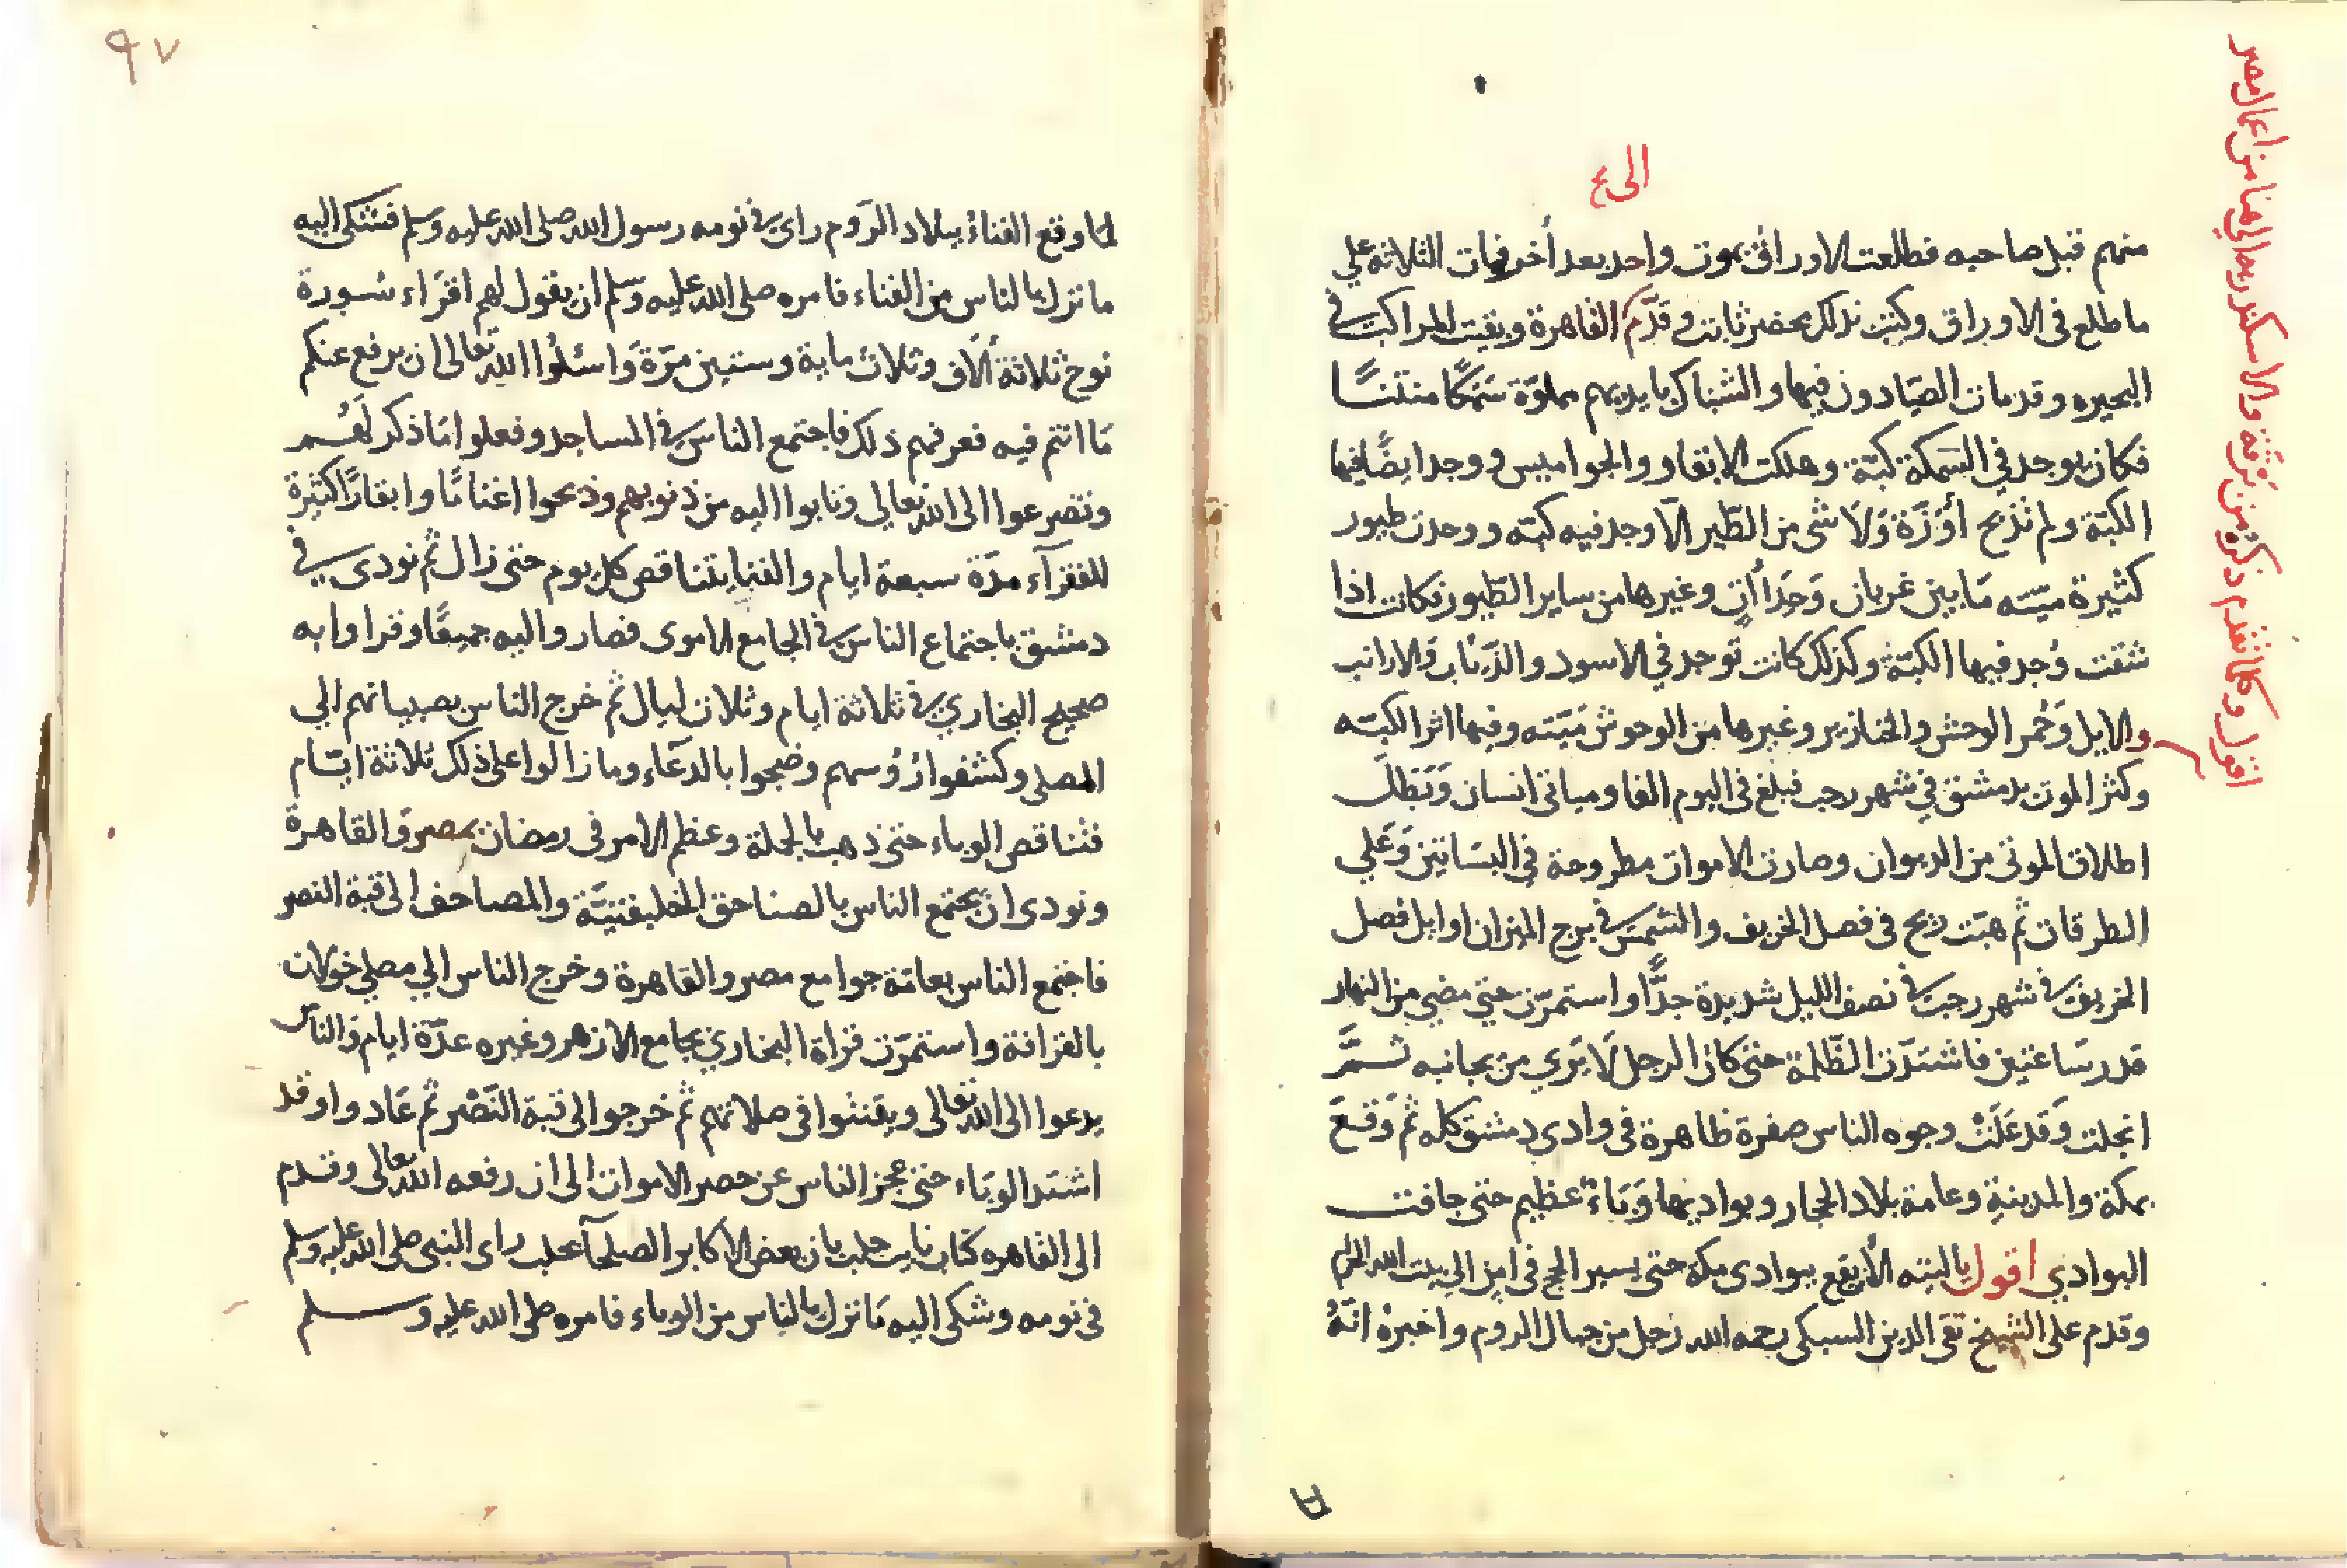 الى ع
منهم قبل صاحبه فطلعت الاوراق بموت واحد بعد أخر فمات الثلاثه علي
ما طلع فى الاوراق وكتب بذلك محضر ثابت وقدّم القاهرة وبقيت المراكب في
البحيره وقد مات الصيّادون فيها والشباك بايديهم مملوّة سَمَكًا منتنًا
فكان يوجد في السّمكة كبّة وهلكت الابقار والجواميس ووجد ايضًا فيها
الكبّة ولم تذبح أوزّة وَلا شى من الطّير الّا وجد فيه كبّه ووجدت طيور
كثيرة ميّتة مَا بين غربان وَحِدَأن وغيرها من ساير الطّيور فكانت اذا
شقت وُجد فيها الكبّة وكذلك كانت توجد في الاسود والذّئاب وَالارانب
والابل وَحُمر الوحش والخنازير وغيرها من الوحوش مَيّته وفيها اثر الكبّه
وكثر الموت بدمشق في شهر رجب فبلغ فى اليوم الفا وميأتى انسان وَبَطَلَ
اطلاق الموتى من الديوان وصارت الاموات مطروحة في البسَاتين وَعَلي
الطرقات ثم هبّت ريح فى فصل الخريف والشمس في برج الميزان اوايل فصل
الخريف في شهر رجب في نصف الليل شديدة جدًّا واستمرّت حتي مضي من النهار
قدر سَاعتين فاشتدّت الظّلمة حتى كان الرجل لَا يَرَي من بجانبه ثمَّ
انجلت وَقد عَلَتْ وجوه الناس صفرة ظاهرة فى وادى دمشق كله ثم وَقَعَ
بمكة والمدينة وعامة بلاد الحجاز وبواديها وَبَاءٌ عظيم حتى جافت
البوادي اقول ياليته لا يقع ببوادى مكة حتى يسير الحج فى امن الى بيت الله الحرام
وقدم على الشيخ تقى الدين السبكى رحمه الله رجل من جبال الروم واخبرهُ انّهُ
اقول وكاتقدم ذكره من غَزّة والاسكندرية الي هنا من اعمال مصر
٩٧
لما وقع الفناءُ ببلاد الرّوم راى في نومه رسول الله صلى الله عليه وسلم فشكى اليه
ما نزل بالناس من الفناء فامره صلى الله عليه وسلم ان يقول لهم اقرَاء سُورة
نوح ثلاثة أَلَاف وثلاث ماية وستين مرّة وَاسئلوا الله تعالى ان يرفع عنكم
مَا انتم فيه فعرفهم ذلك فاجتمع الناس في المساجد وفعلوا مَا ذكر لَهُم
وتضرعوا الى الله تعالي وتابوا اليه من ذنوبهم وذبحوا اغنامًا وابقارًا كثيرة
للفقرآء مدّة سبعة ايام والفنا يتناقص كل يوم حتى زال ثم نودى في
دمشق باجتماع الناس في الجامع الاموى فصاروا اليه جميعًا وقراوا به
صحيح البخاري في ثلاثة ايام وثلاث ليال ثم خرج الناس بصبيانهم الي
المصلى وكشفوا رُوُسهم وضجوا بالدعَاء وما زالوا على ذلك ثلاثة ايّام
فتناقص الوباء حتى ذهب بالجملة وعظم الامر فى رمضان بمصر وَالقاهرة
ونودى ان يجتمع الناس بالصناجق الخليفتيّة والمصاحف الى قبة النصر
فاجتمع الناس بعامّة جوامع مصر والقاهرة وخرج الناس الي مصلي خولان
بالقرافة واستمرّت قراة البخاري بجامع الازهر وغيره عدّة ايام وَالناس
يدعوا الى الله تعالى ويقنتوا فى صلاتهم ثم خرجوا الى قبة النّصْر ثم عَادوا وقد
اشتد الوبَاء حتى عجز الناس عن حصر الاموات الى ان رفعه الله تعالى وقدم
الى القاهره كتاب نايب حلب بان بعض الاكابر الصلحآ بحلب راى النبى صلى الله عليه وسلم
فى نومه وشكى اليه مَا نزل بالناس من الوباء فامره صلى الله عليه وسلم